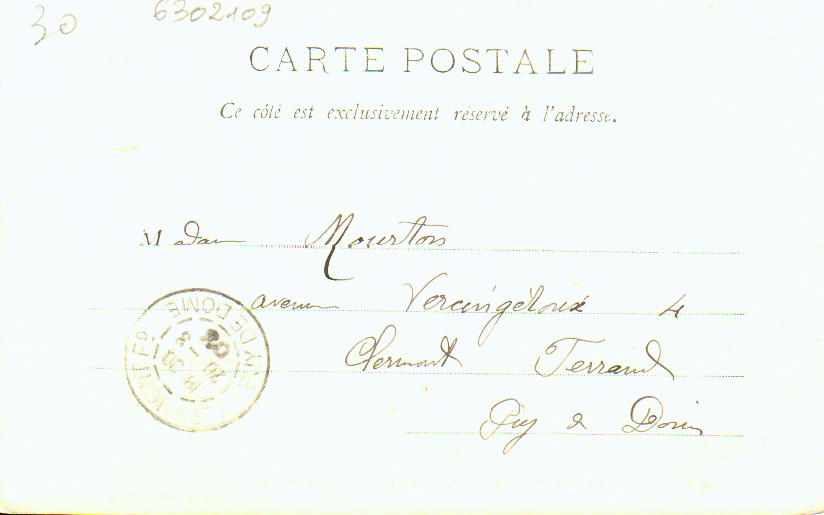 30 6302109
CARTE POSTALE
Ce côté est exclusivement réservé à l'adresse.
Madame Mourton
avenue Vercingétorix 4
Clermont Ferrand
Puy de Dôme
PUY-DE-DOME